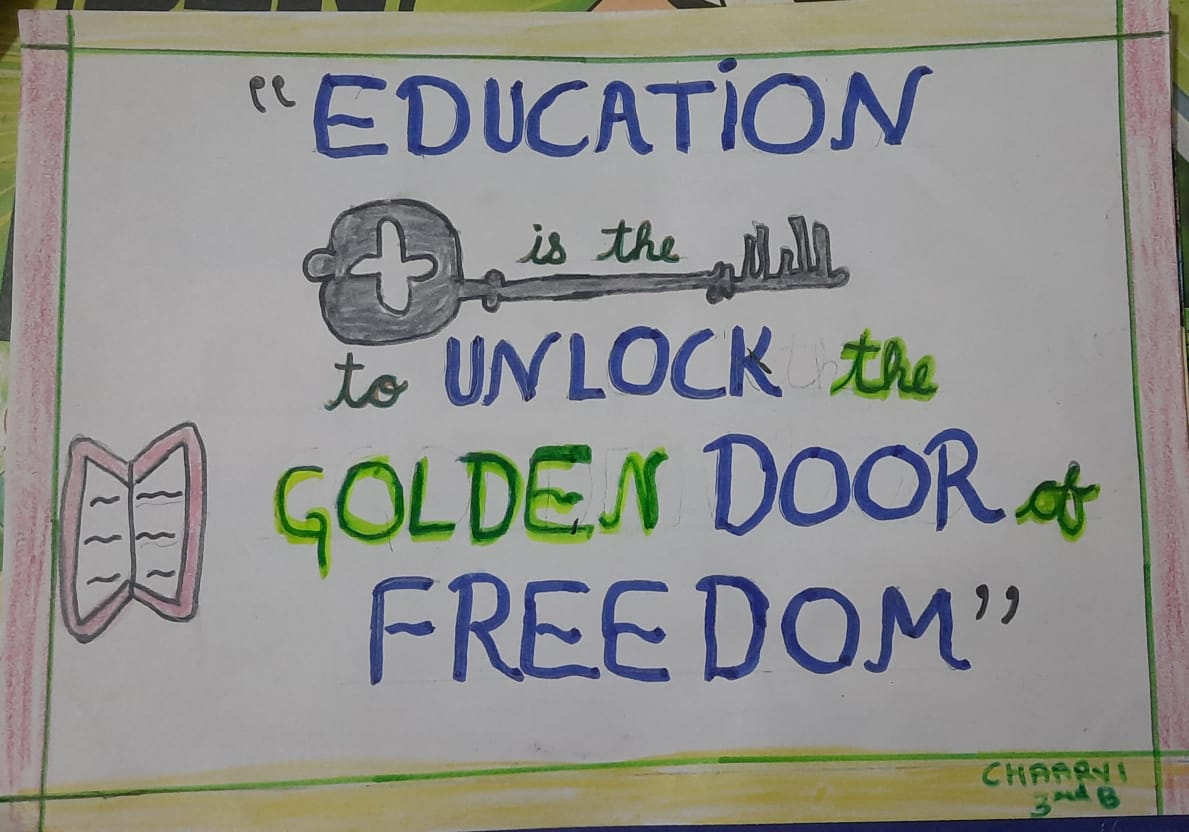 “EDUCATION
is the
to UNLOCK the
GOLDEN DOOR of
FREEDOM”
CHAARVI
3rd B